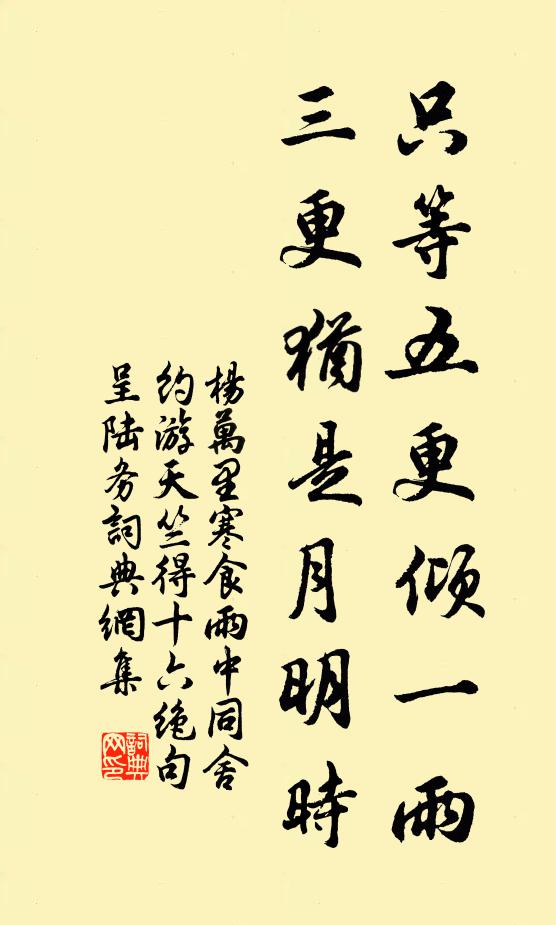 只等五更倾一雨
三更猶是月明時
楊萬里寒食雨中同舍
约游天竺得十六绝句
呈陆务詞典網集
詞典
网印